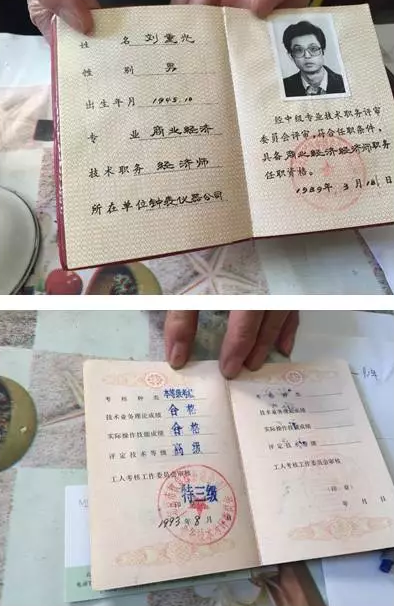 姓 名 刘重光
性 别 男
出生年月 1945.10
专 业 商业经济
技术职务 经济师
所在单位 钟表仪器公司
经中级专业技术职务评审
委员会评审,符合任职条件,
具备商业经济经济师职务
任职资格。
1989年 3月18日
考 核 种 类 本等级考核
技术业务理论成绩 合格
实际操作技能成绩 合格
评定技术等级 高级
工人考核工作委员会审核
特三级
1993年8月 日
考 核 种 类
技术业务理论成绩
实际操作技能成绩
评定技术等级
工人考核工作委员会审核
(印 章)
年 月 日